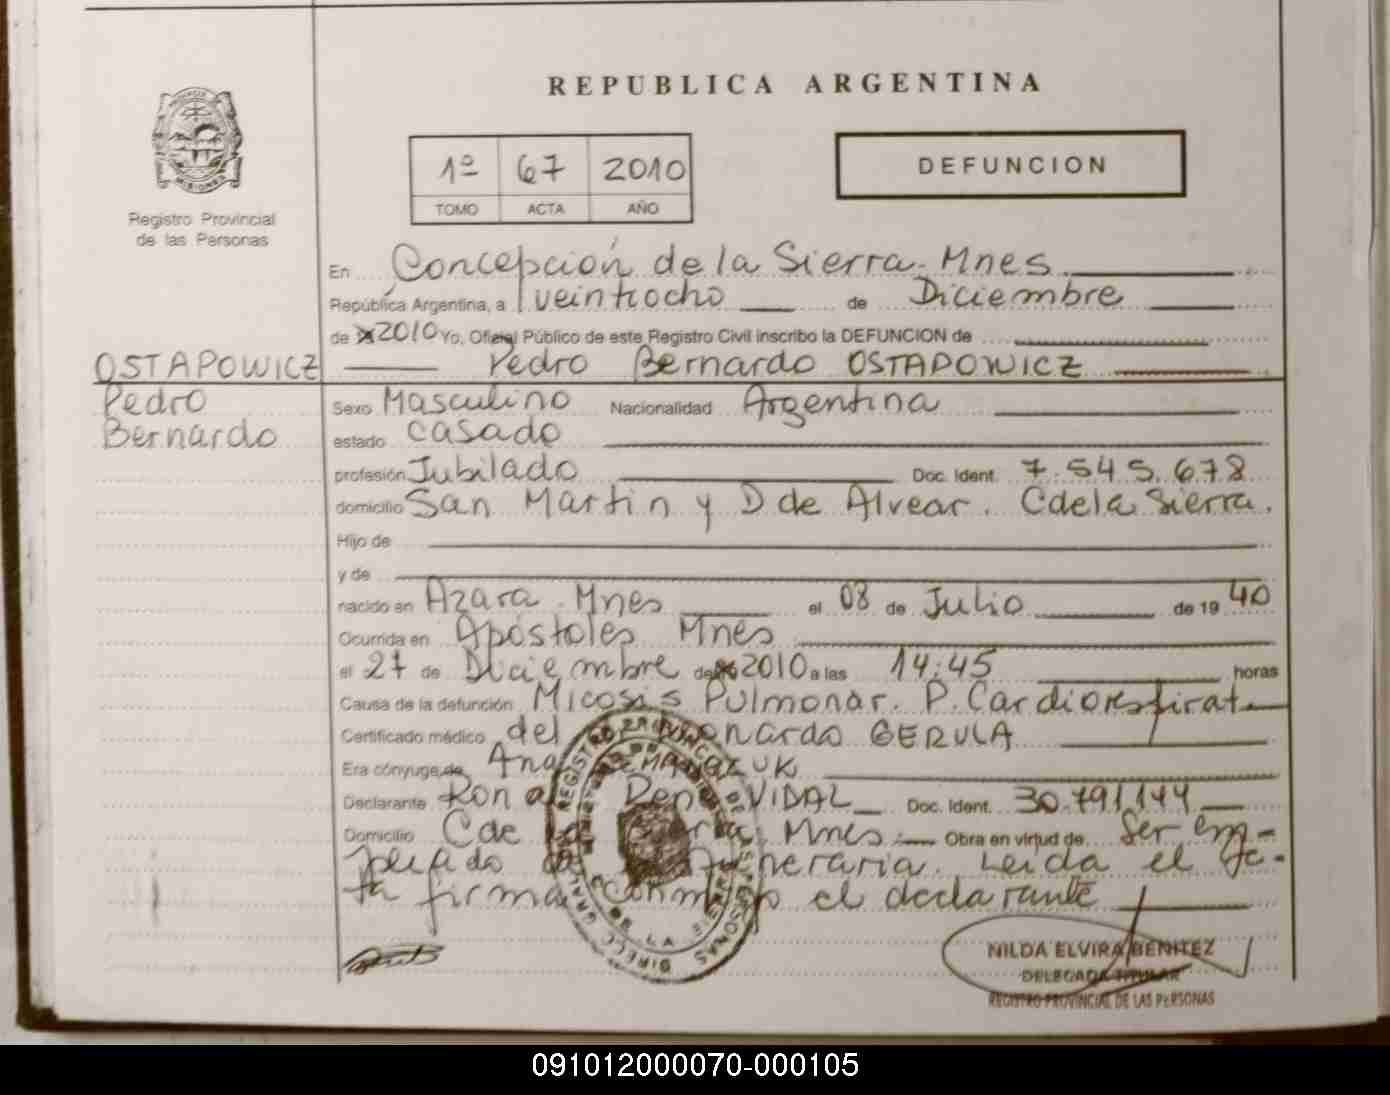 REPUBLICA ARGENTINA
PROVINCIA
MISIONES
Registro Provincial
de las Personas
1º 67 2010
TOMO ACTA AÑO
DEFUNCION
En Concepción de la Sierra. Mnes
República Argentina, a veintiocho de Diciembre
de 2010 Yo, Oficial Público de este Registro Civil inscribo la DEFUNCION de
OSTAPOWICZ
Pedro
Bernardo
Pedro Bernardo OSTAPOWICZ
Sexo Masculino Nacionalidad Argentina
estado Casado
profesión Jubilado Doc. Ident. 7.545.678
domicilio San Martin y D de Alvear. C de la Sierra.
Hijo de
y de
nacido en Azara. Mnes el 08 de Julio de 19 40
Ocurrida en Apóstoles Mnes
el 27 de Diciembre de 2010 a las 14:45 horas
Causa de la defunción Micosis Pulmonar. P. Cardiorespirat
Certificado médico del GERULA
Era cónyuge de Ana
Declarante VIDAL Doc. Ident. 30.791.144
Domicilio C de Mnes.- Obra en virtud de Ser em-
pleado funeraria. Leida el Ac-
ta firma conmigo el declarante
REGISTRO PROVINCIAL DE LAS PERSONAS
NILDA ELVIRA BENITEZ
DELEGADA TITULAR
REGISTRO PROVINCIAL DE LAS PERSONAS
091012000070-000105